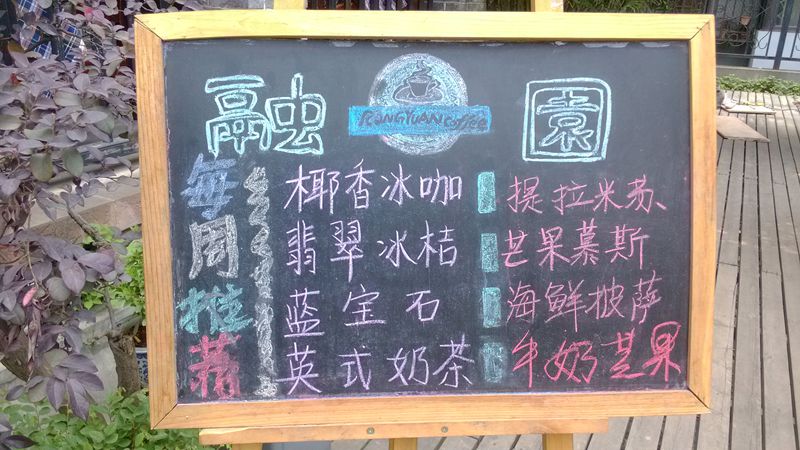 融 園
RONGYUAN coffee
每周推荐
椰香冰咖 提拉米苏、
翡翠冰桔 芒果慕斯
蓝宝石 海鲜披萨
英式奶茶 牛奶芒果